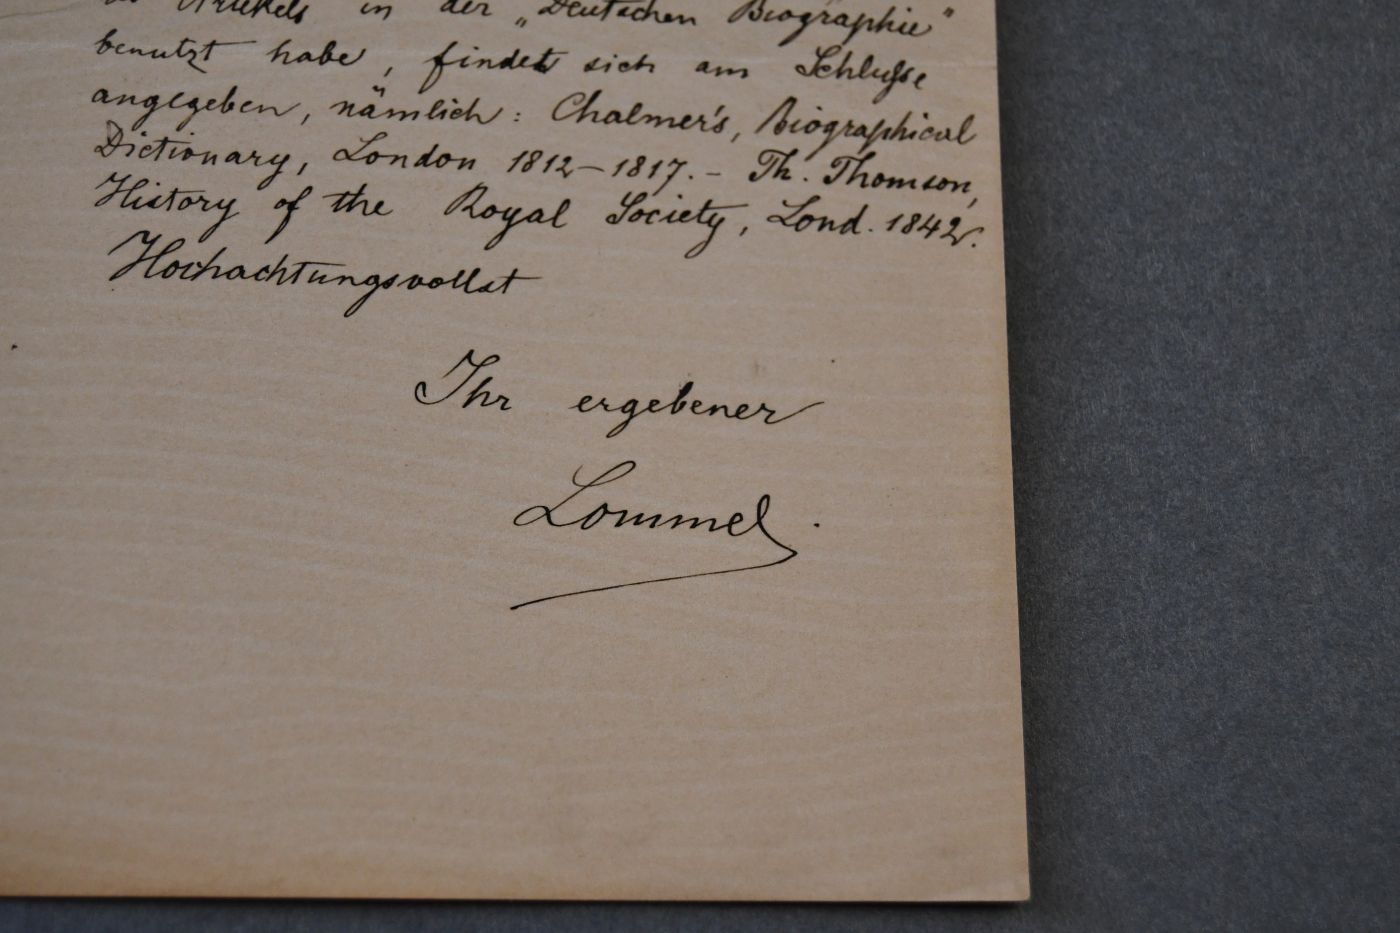 des Artikels in der „Deutschen Biographie"
benutzt habe, findet sich am Schlusse
angegeben, nämlich: Chalmer's, Biographical
Dictionary, London 1812–1817. – Th. Thomson,
History of the Royal Society, Lond. 1842.
Hochachtungsvollst
Ihr ergebener
Lommel.